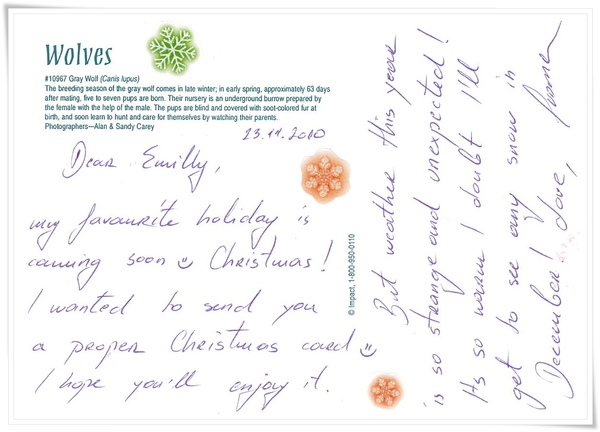 Wolves
#10967 Gray Wolf (Canis lupus)
The breeding season of the gray wolf comes in late winter; in early spring, approximately 63 days
after mating, five to seven pups are born. Their nursery is an underground burrow prepared by
the female with the help of the male. The pups are blind and covered with soot-colored fur at
birth, and soon learn to hunt and care for themselves by watching their parents.
Photographers—Alan & Sandy Carey
23.11.2010
Dear Emilly,
my favourite holiday is
coming soon Christmas!
I wanted to send you
a proper Christmas card
I hope you'll enjoy it.
© Impact, 1-800-950-0110
But weather this year
is so strange and unexpected!
It's so warm I doubt I'll
get to see any snow in
December! Love,